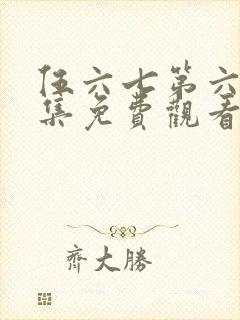 伍六七第六
集免費觀看
齊大勝